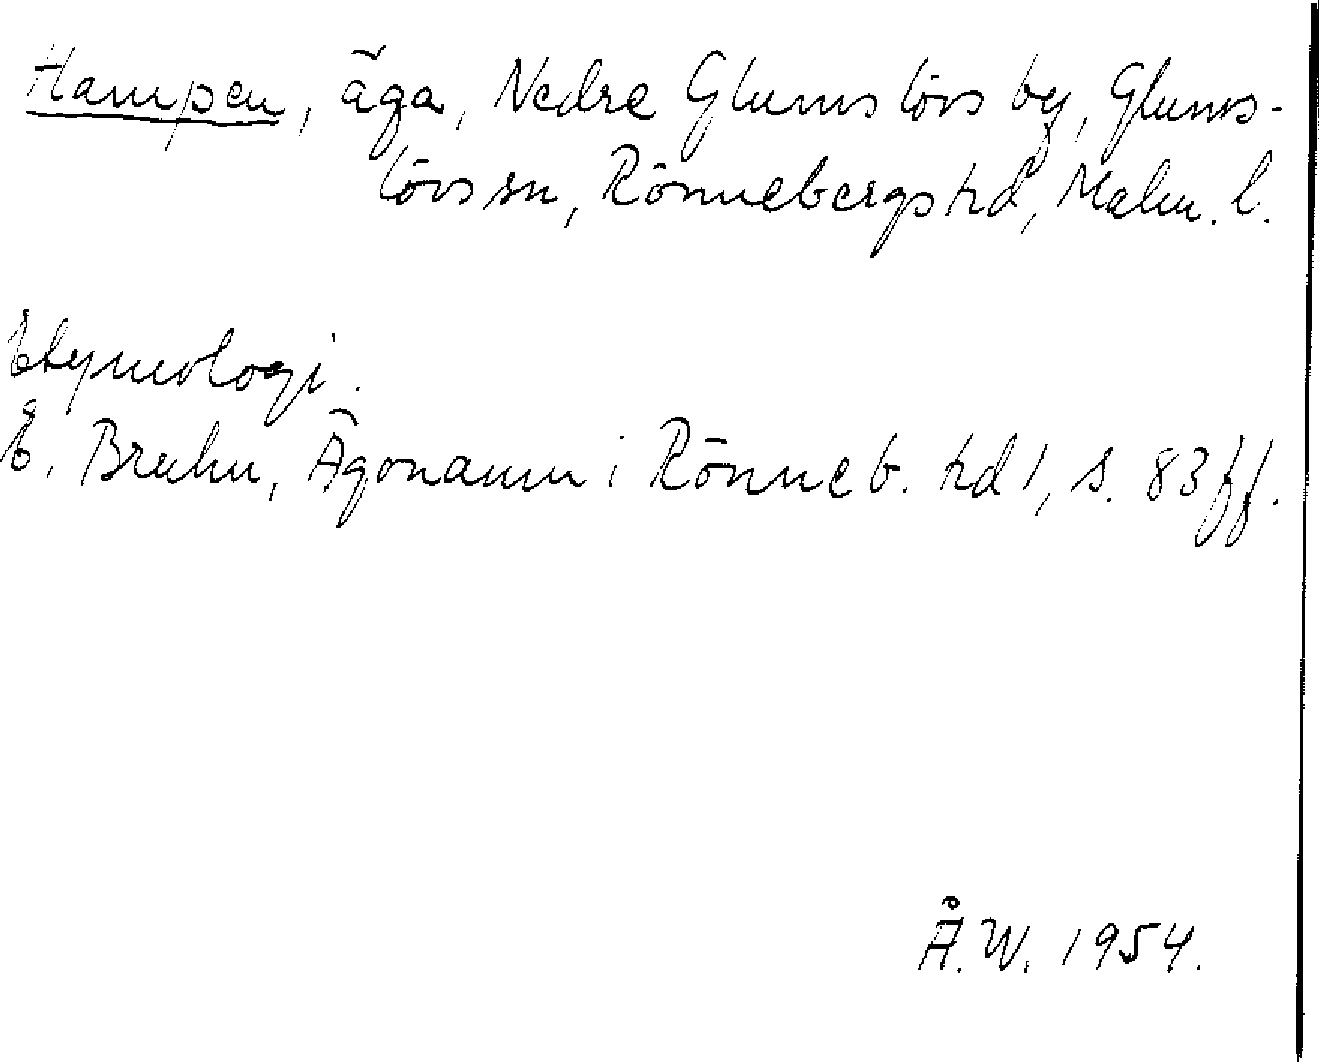 Hampen, äga, Nedre Glumslövs by, Glums-
lövs sn, Rönnebergs hd, Malm. l.
Etymologi.
E. Bruhn, Ägonamn i Rönneb. hd 1, s. 83 ff.
Å. W. 1954.